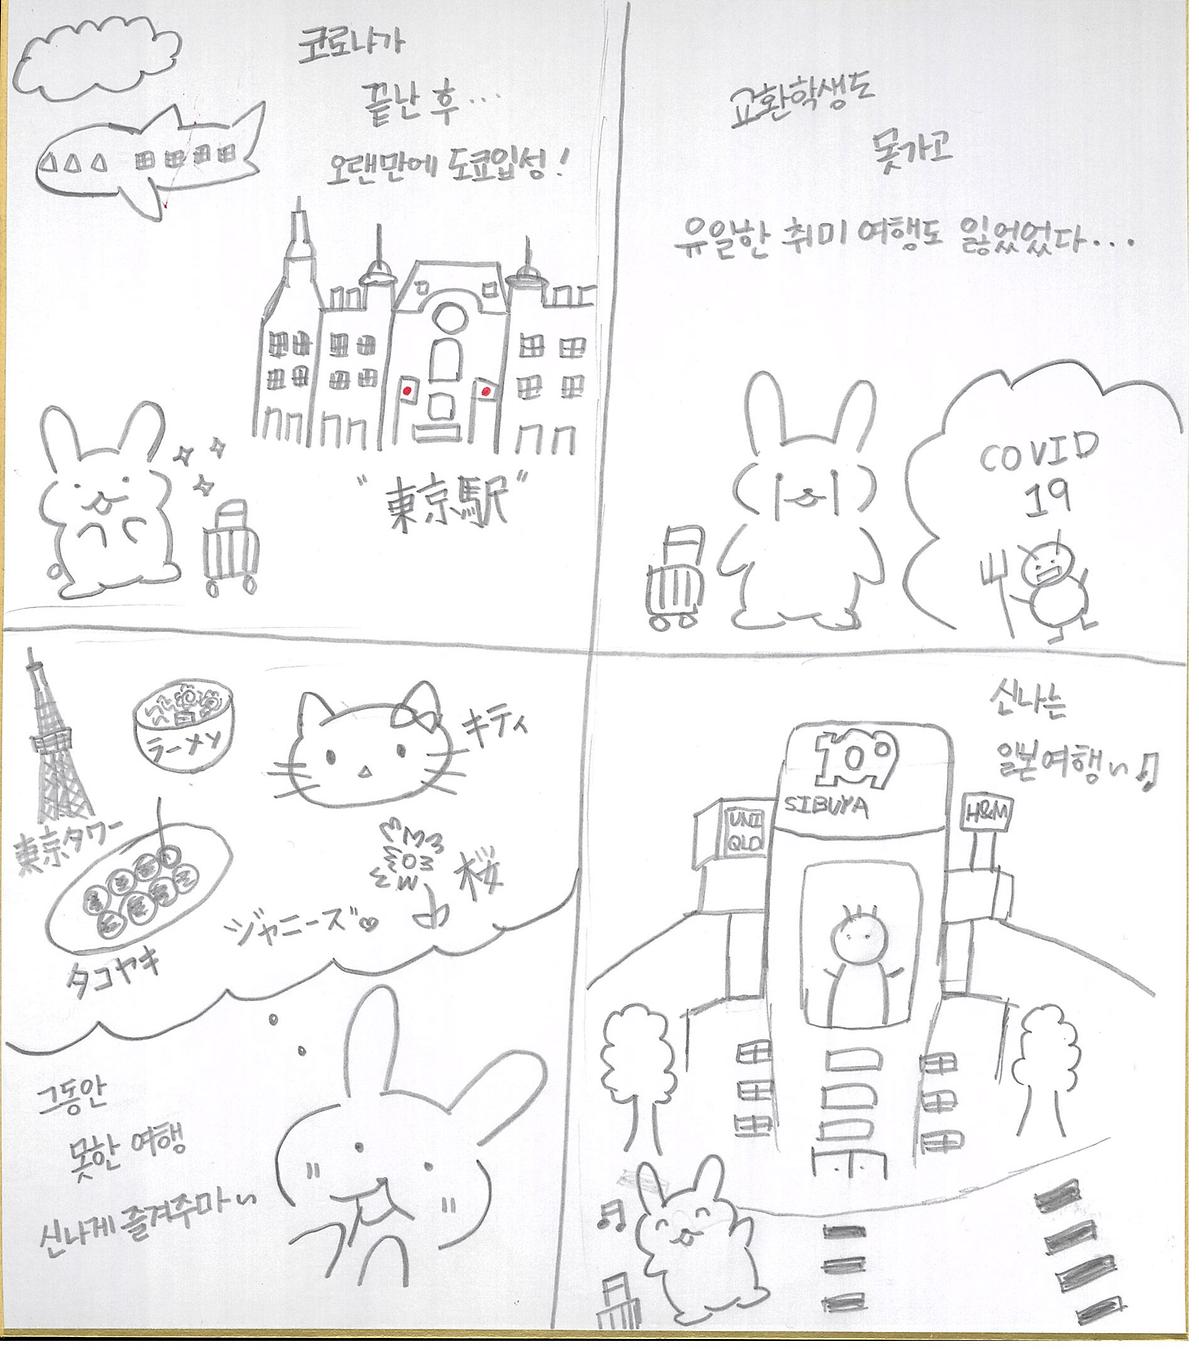 코로나가
끝난 후...
오랜만에 도쿄입성!
"東京駅"
교환학생도
못가고
유일한 취미 여행도 잃었었다...
COVID
19
東京タワー
ラーメン
キティ
タコヤキ
ジャニーズ♡
桜
그동안
못한 여행
신나게 즐겨주마~
신나는
일본여행~♫
109
SIBUYA
UNI
QLO
H&M